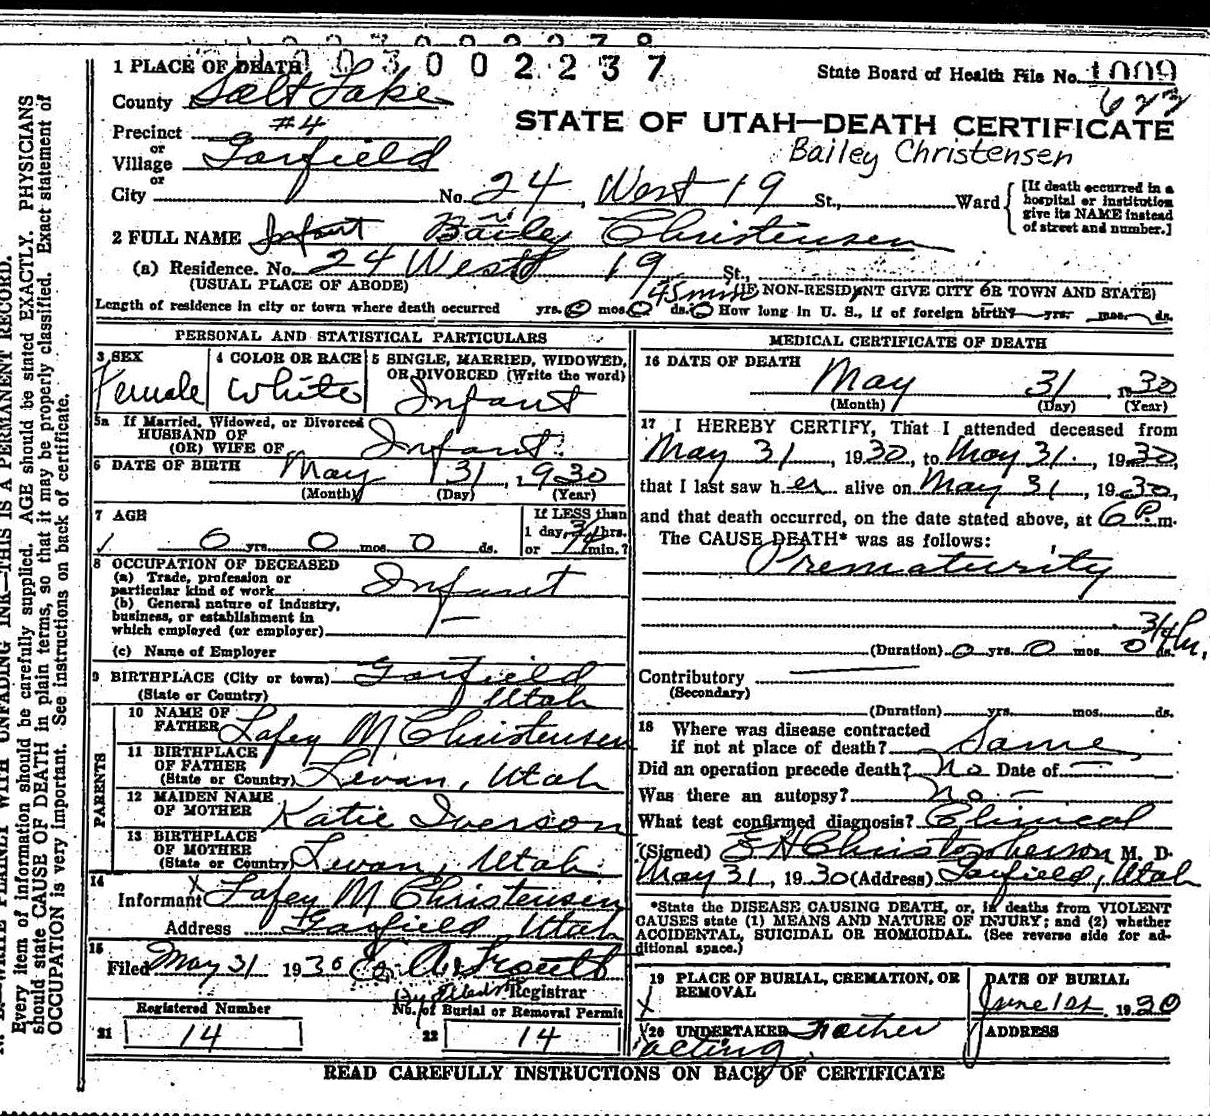 003002237
1 PLACE OF DEATH
State Board of Health File No. 1009
County Salt Lake
622
Precinct #4
STATE OF UTAH—DEATH CERTIFICATE
or
Village Garfield
Bailey Christensen
or
City No. 24 West 19 St., Ward
[If death occurred in a hospital or institution give its NAME instead of street and number.]
2 FULL NAME Infant Bailey Christensen
(a) Residence. No. 24 West 19 St.,
(USUAL PLACE OF ABODE)
45 min (IF NON-RESIDENT GIVE CITY OR TOWN AND STATE)
Length of residence in city or town where death occurred yrs. 0 mos. 0 ds. 0 How long in U. S., if of foreign birth? yrs. mos. ds.
PERSONAL AND STATISTICAL PARTICULARS
3 SEX
Female
4 COLOR OR RACE
White
5 SINGLE, MARRIED, WIDOWED,
OR DIVORCED (Write the word)
Infant
5a If Married, Widowed, or Divorced
HUSBAND OF
(OR) WIFE OF Infant
6 DATE OF BIRTH May 31, 1930
(Month) (Day) (Year)
7 AGE
0 yrs. 0 mos. 0 ds.
If LESS than
1 day, 3/4 hrs.
or min.?
8 OCCUPATION OF DECEASED
(a) Trade, profession or
particular kind of work Infant
(b) General nature of industry,
business, or establishment in
which employed (or employer)
(c) Name of Employer
9 BIRTHPLACE (City or town) Garfield
(State or Country) Utah
PARENTS
10 NAME OF
FATHER Lafey M Christensen
11 BIRTHPLACE
OF FATHER
(State or Country) Levan, Utah
12 MAIDEN NAME
OF MOTHER Katie Iverson
13 BIRTHPLACE
OF MOTHER
(State or Country) Levan, Utah
14
Informant Lafey M Christensen
Address Garfield Utah
15
Filed May 31 1930
Registrar
Registered Number
21 14
No. of Burial or Removal Permit
22 14
MEDICAL CERTIFICATE OF DEATH
16 DATE OF DEATH
May 31, 1930
(Month) (Day) (Year)
17 I HEREBY CERTIFY, That I attended deceased from
May 31, 1930, to May 31, 1930,
that I last saw her alive on May 31, 1930,
and that death occurred, on the date stated above, at 6 P.m.
The CAUSE DEATH* was as follows:
Prematurity
3/4 hr.
(Duration) 0 yrs. 0 mos. 0 ds.
Contributory
(Secondary)
(Duration) yrs. mos. ds.
18 Where was disease contracted
if not at place of death? Same
Did an operation precede death? no Date of
Was there an autopsy? No
What test confirmed diagnosis? Clinical
(Signed) E H Christopherson M. D.
May 31, 1930 (Address) Garfield, Utah
*State the DISEASE CAUSING DEATH, or, in deaths from VIOLENT
CAUSES state (1) MEANS AND NATURE OF INJURY; and (2) whether
ACCIDENTAL, SUICIDAL OR HOMICIDAL. (See reverse side for ad-
ditional space.)
19 PLACE OF BURIAL, CREMATION, OR
REMOVAL
DATE OF BURIAL
June 1st 1930
20 UNDERTAKER Father
acting.
ADDRESS
READ CAREFULLY INSTRUCTIONS ON BACK OF CERTIFICATE
WRITE PLAINLY WITH UNFADING INK—THIS IS A PERMANENT RECORD.
Every item of information should be carefully supplied. AGE should be stated EXACTLY. PHYSICIANS
should state CAUSE OF DEATH in plain terms, so that it may be properly classified. Exact statement of
OCCUPATION is very important. See instructions on back of certificate.